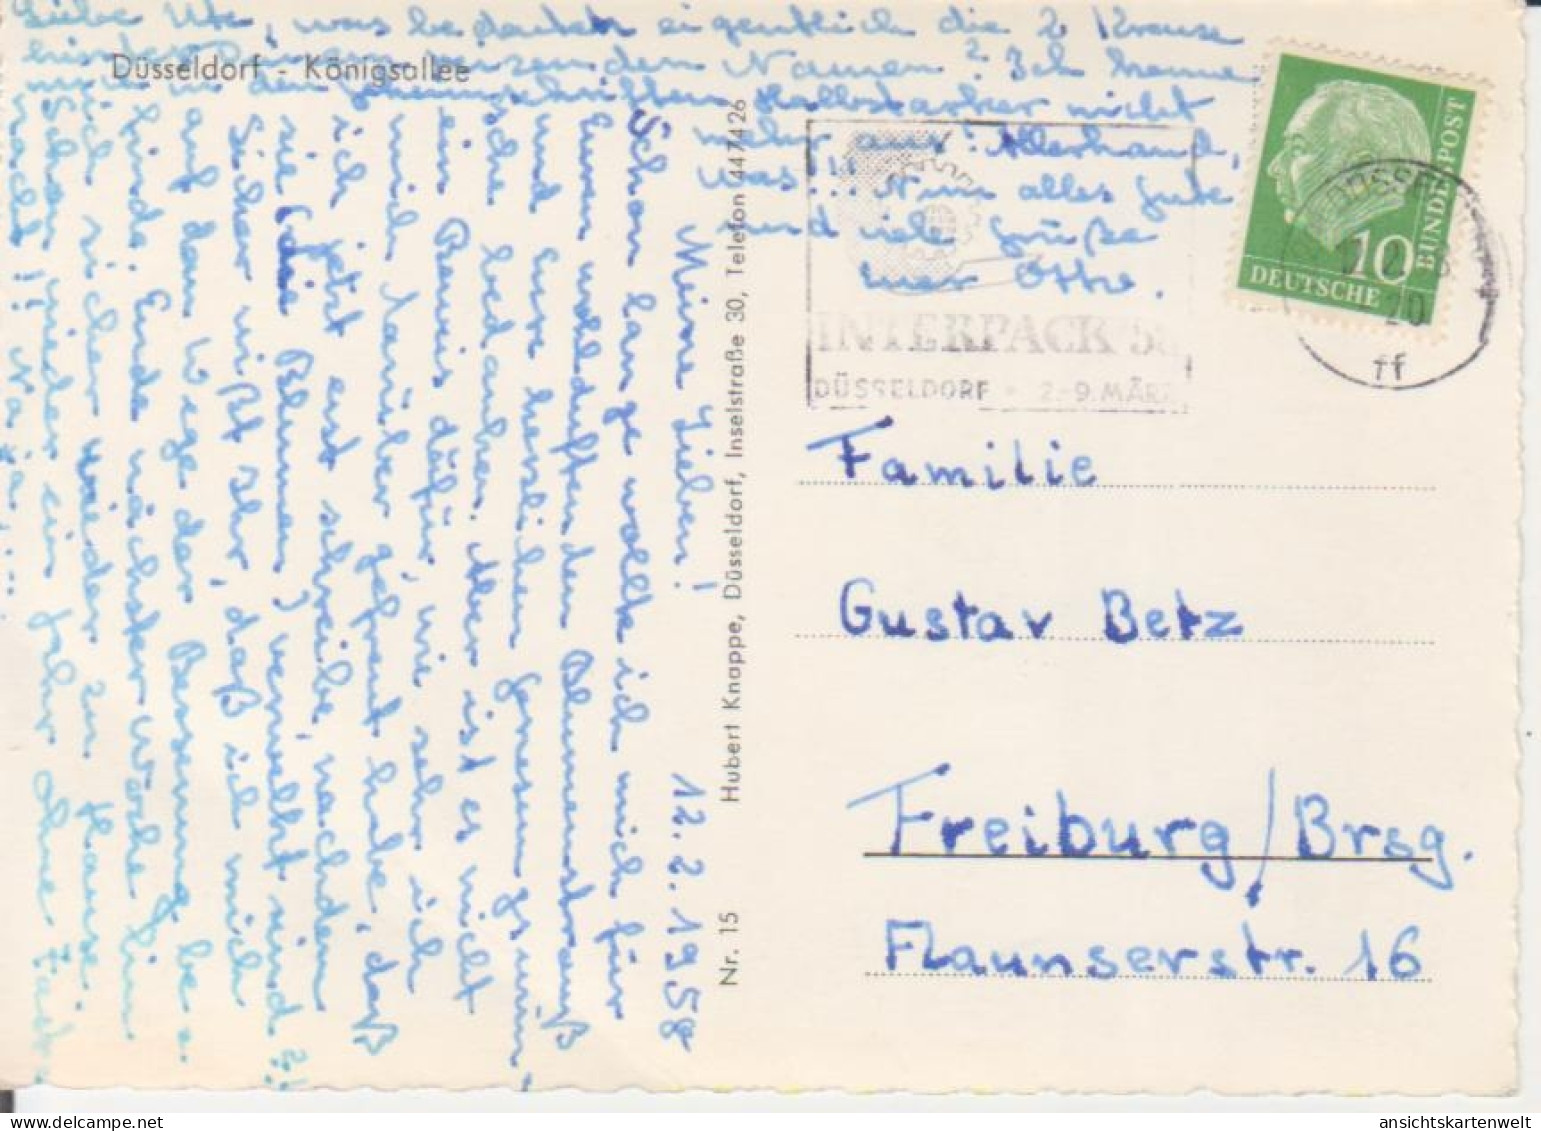 Liebe Ute, was bedeuten eigentlich die 2 Kreuze
hinter Deinem Namen? Ich kenne
mich in den Halbstarker nicht
mehr aus! Allerhand,
was!!! Nun alles Gute
und viele Grüße
Düsseldorf - Königsallee
Meine Lieben! 12.2.1958
Schon lange wollte ich mich für
Euren wohlduftenden Blumenstrauß
und Eure herzlichen Genesungswün-
sche bedanken. Aber ist es nicht
ein Beweis dafür, wie sehr ich
mich darüber gefreut habe, daß
ich jetzt erst schreibe, nachdem
sie (die Blumen) verwelkt sind?!
Sicher wißt Ihr, daß ich mich
auf dem Wege der Besserung be-
finde. Ende nächster Woche bin
ich sicher wieder zu Hause.
Schon wieder ein Jahr ohne
! Na ja ...
Hubert Knappe, Düsseldorf, Inselstraße 30, Telefon 447426
Nr. 15
INTERPACK 58
DÜSSELDORF • 2.-9. MÄRZ
DEUTSCHE BUNDESPOST
10
DÜSSEL
20
ff
Familie
Gustav Betz
Freiburg/Brsg.
Flaunserstr. 16
ansichtskartenwelt.de